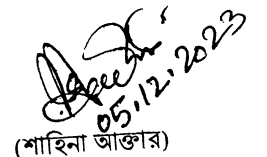 05.12.2023
(শাহিনা আক্তার)